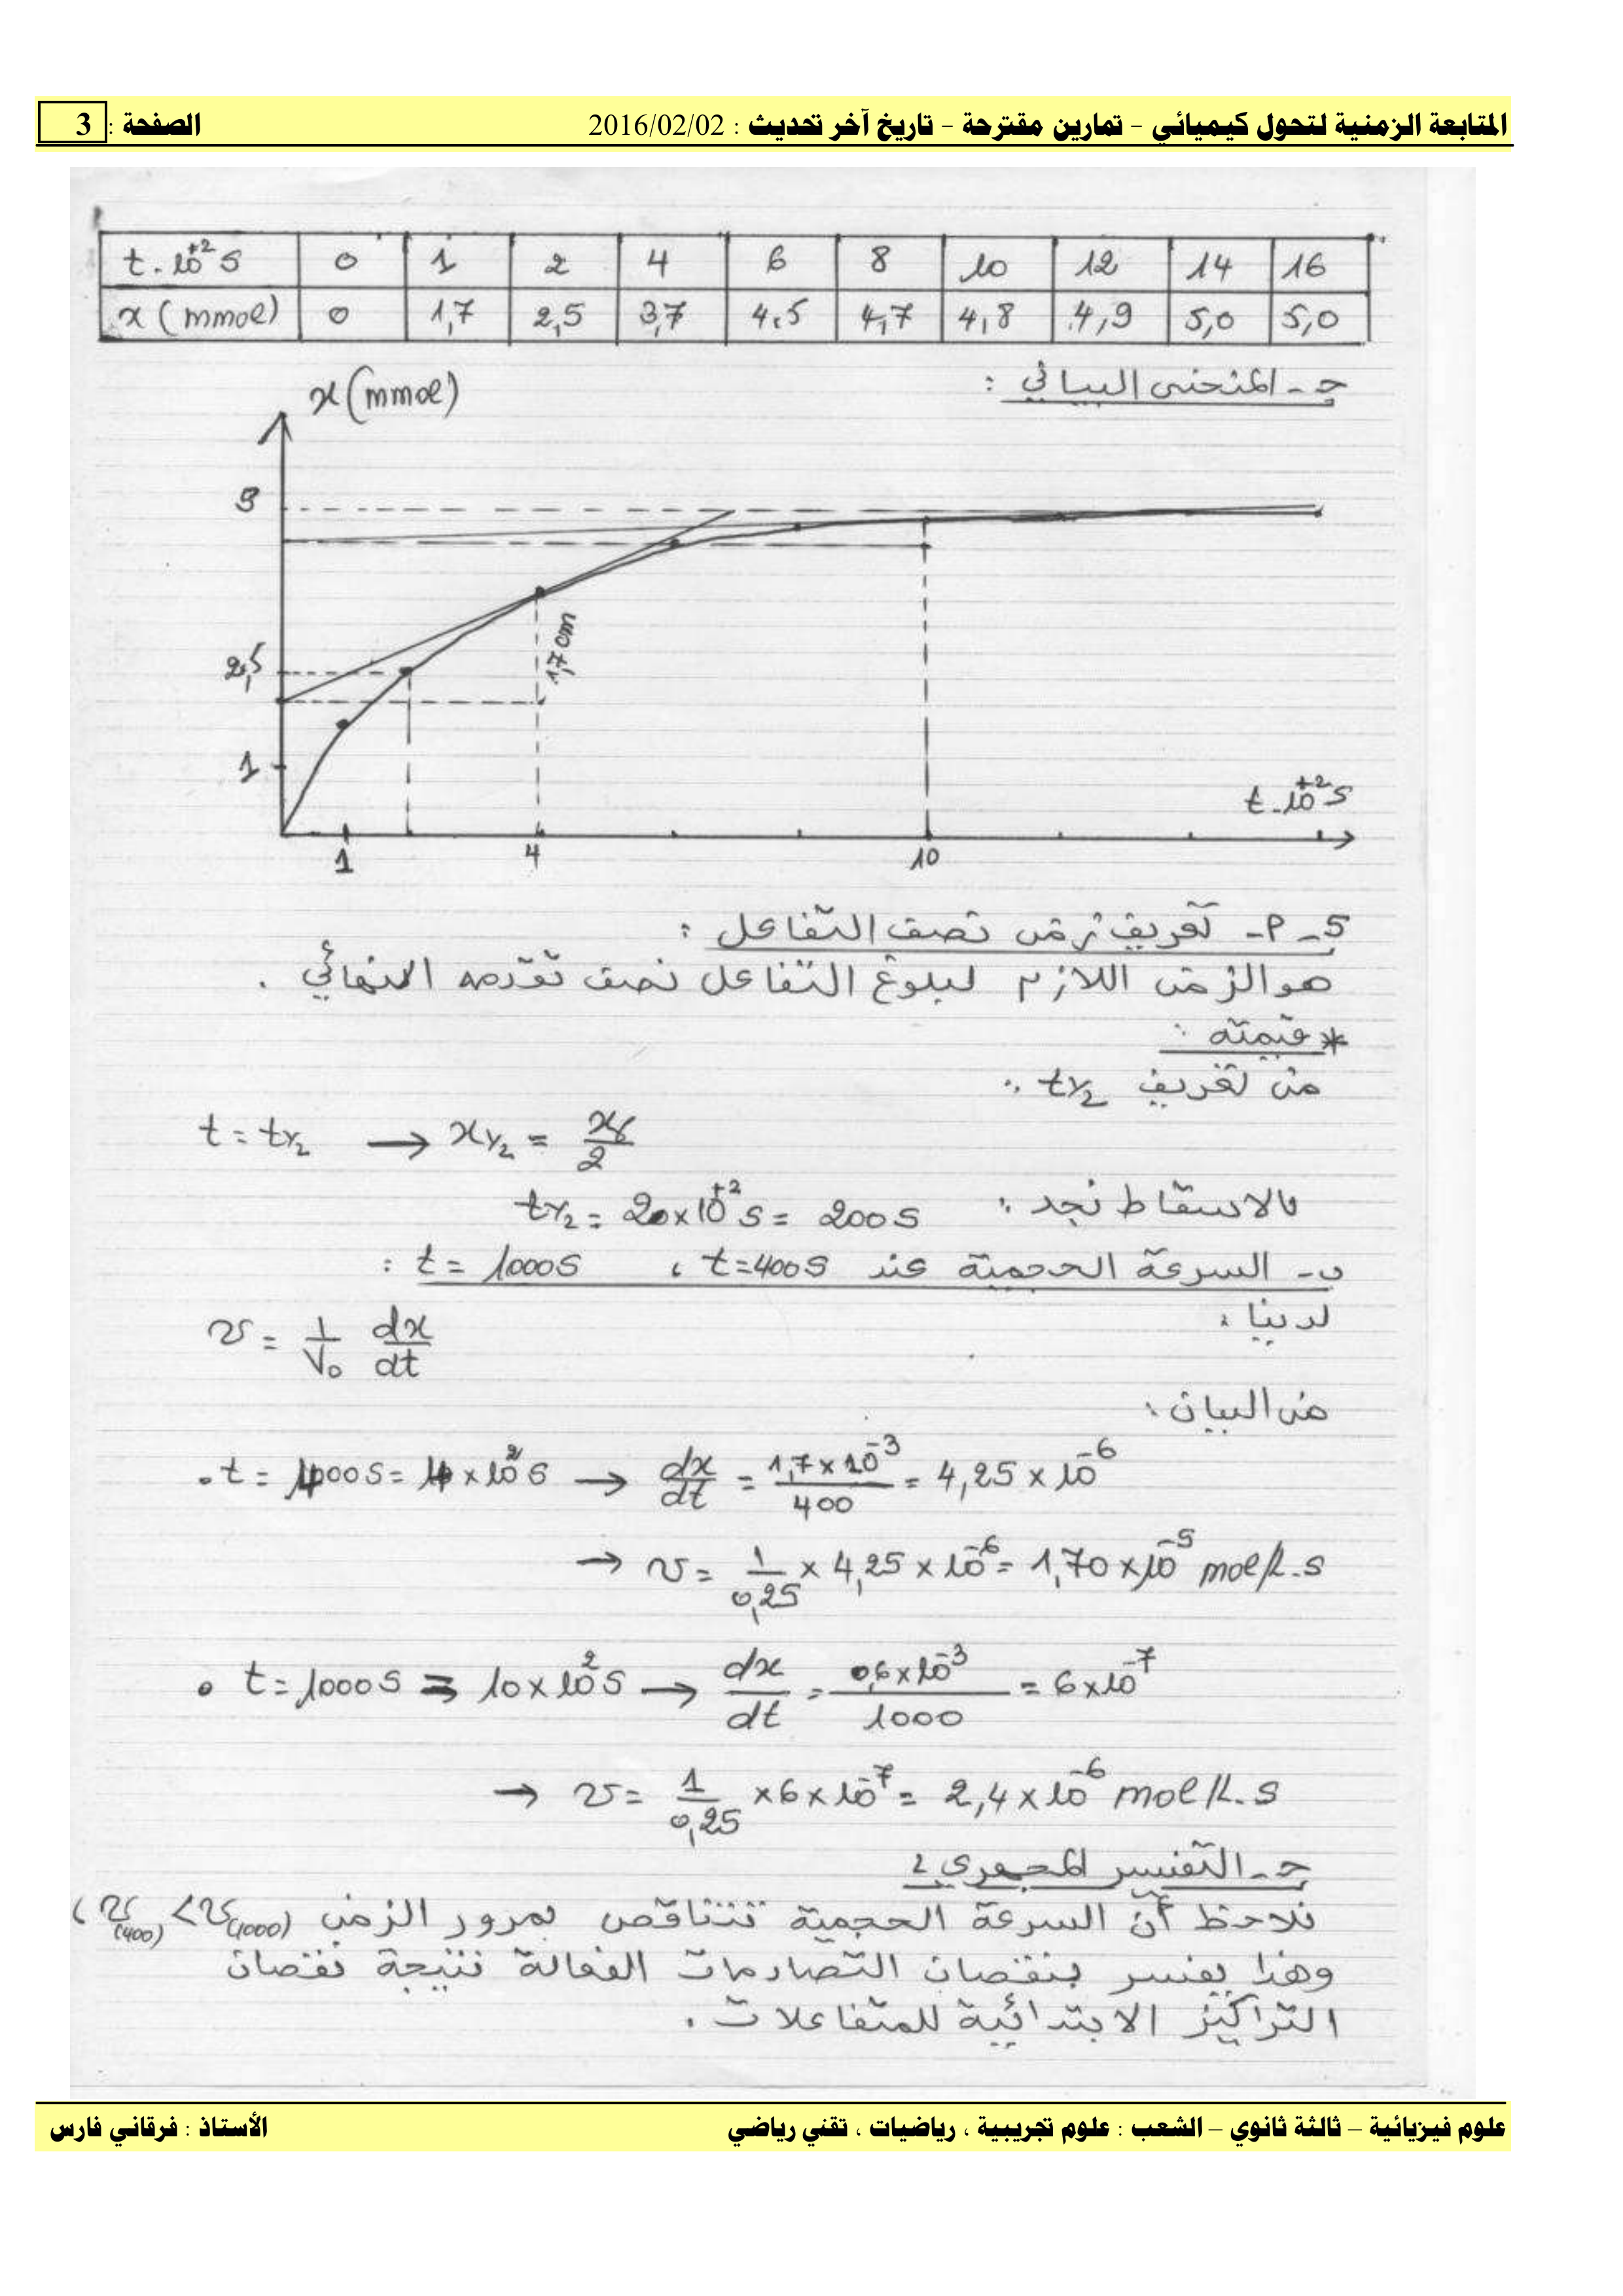 المتابعة الزمنية لتحول كيميائي – تمارين مقترحة – تاريخ آخر تحديث : 2016/02/02 الصفحة : 3
t.10⁺² s 0 1 2 4 6 8 10 12 14 16
x (mmol) 0 1,7 2,5 3,7 4,5 4,7 4,8 4,9 5,0 5,0
جـ - المنحنى البياني :
x (mmol)
5
2,5
1,7 cm
1
t.10⁺² s
1 4 10
5 - أ - تعريف زمن نصف التفاعل :
هو الزمن اللازم لبلوغ التفاعل نصف تقدمه النهائي .
* قيمته :
من تعريف t1/2 :
t = t1/2 → x1/2 = xf/2
بالاسقاط نجد : t1/2 = 20×10⁺² s = 200 s
ب - السرعة الحجمية عند t=400s ، t = 1000s :
لدينا :
v = 1/V₀ dx/dt
من البيان :
• t = 400s = 4×10² s → dx/dt = 1,7×10⁻³/400 = 4,25×10⁻⁶
→ v = 1/0,25 × 4,25×10⁻⁶ = 1,70×10⁻⁵ mol/L.s
• t = 1000s = 10×10² s → dx/dt = 0,6×10⁻³/1000 = 6×10⁻⁷
→ v = 1/0,25 ×6×10⁻⁷ = 2,4×10⁻⁶ mol/L.s
جـ - التفسير المجهري :
نلاحظ أن السرعة الحجمية تتناقص بمرور الزمن v(400) < v(1000) ،
وهذا يفسر بنقصان التصادمات الفعالة نتيجة نقصان
التراكيز الابتدائية للمتفاعلات .
علوم فيزيائية – ثالثة ثانوي – الشعب : علوم تجريبية ، رياضيات ، تقني رياضي الأستاذ : فرقاني فارس